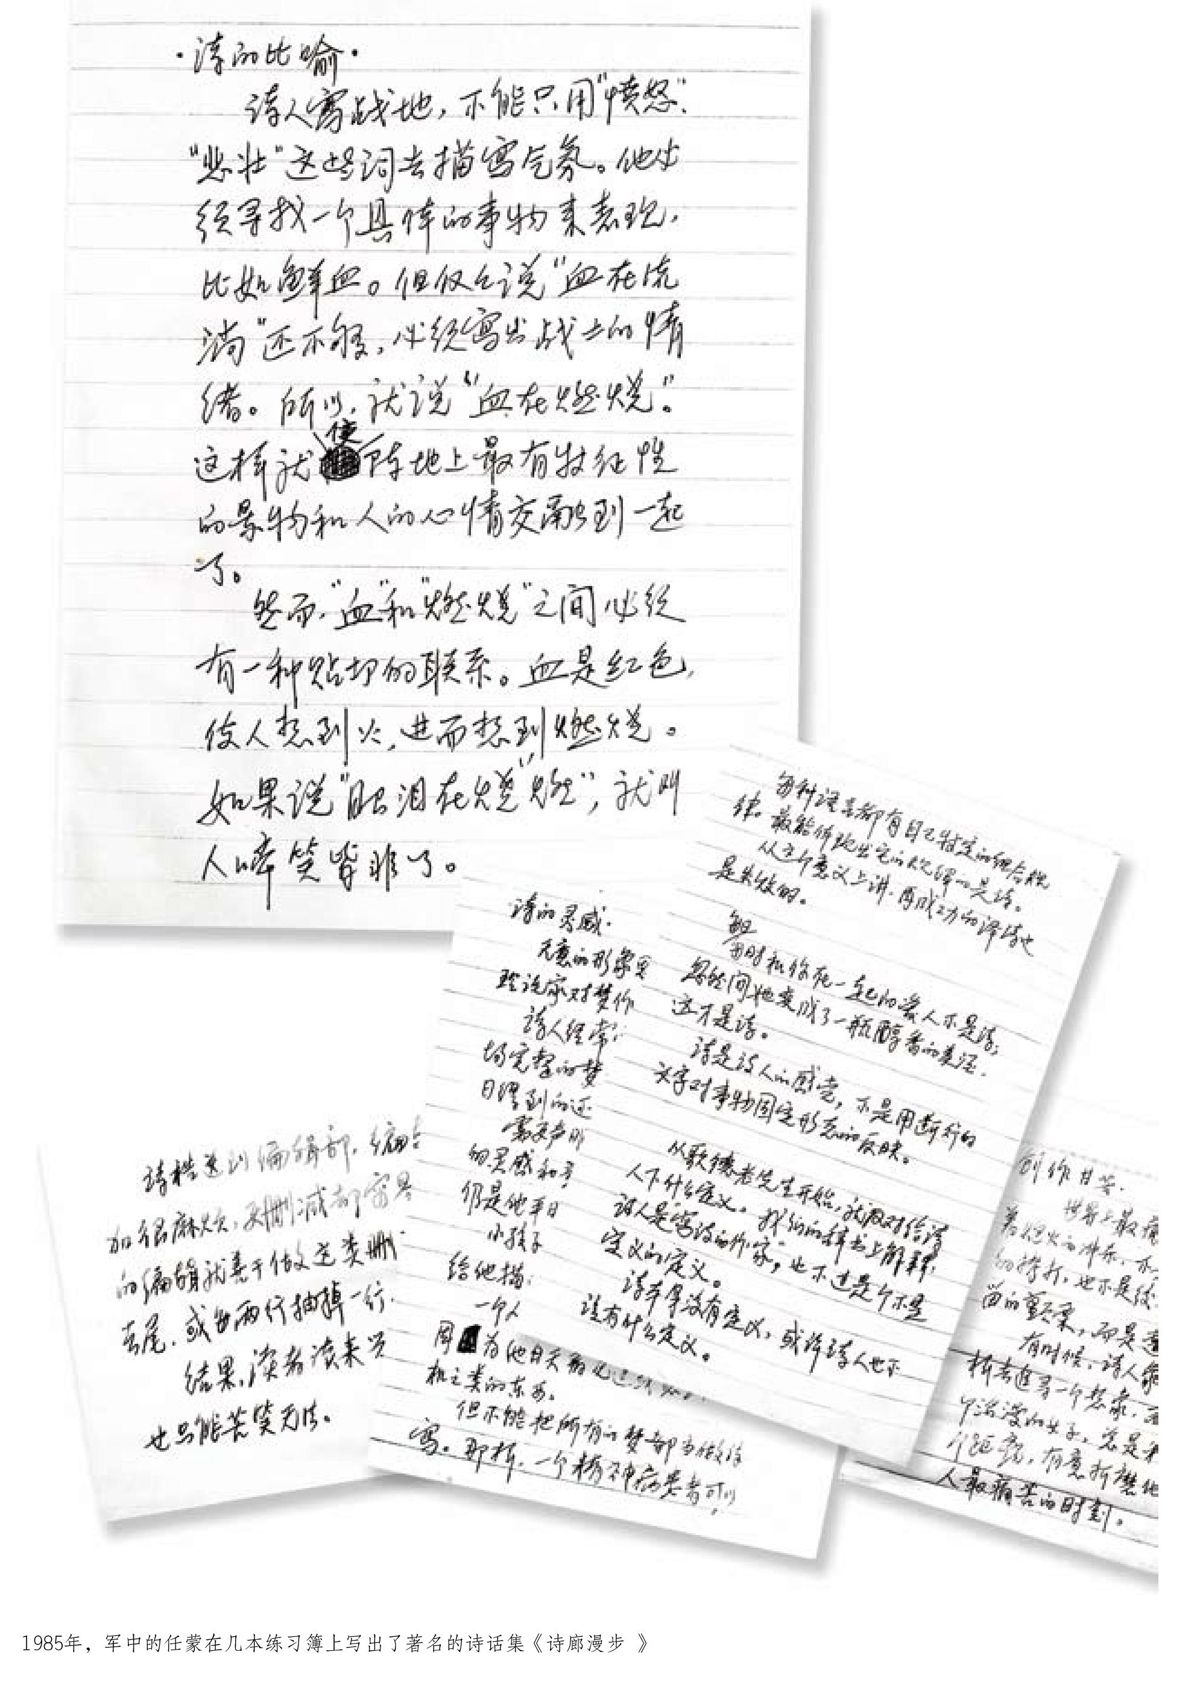 ·诗的比喻·
诗人写战地，不能只用“愤怒”、
“悲壮”这些词去描写气氛。他必
须寻找一个具体的事物来表现，
比如鲜血。但仅仅说“血在流
淌”还不够，必须写出战士的情
绪。所以，就说“血在燃烧”。
这样就使阵地上最有特征性
的景物和人的心情交融到一起
了。
然而，“血”和“燃烧”之间必须
有一种贴切的联系。血是红色，
使人想到火，进而想到燃烧。
如果说“眼泪在燃烧”，就叫
人啼笑皆非了。
每种语言都有自己特定的组合规
律。最能体现出它的规律的是诗。
从这个意义上讲，再成功的译诗也
是失效的。
每时和你在一起的爱人不是诗；
忽然间她变成了一瓶醇香的美酒，
这才是诗。
诗是诗人的感觉，不是用断行的
文字对事物固定形态的反映。
从歌德老先生开始，就反对给诗
人下什么定义。我们的辞书上解释，
诗人是“写诗的作家”，也不过是个不是
定义的定义。
诗本身没有定义，或许诗人也不
该有什么定义。
诗的灵感·
无意的形象
诗人经常
场完整的梦
日得到的还
的灵感和
仍是他平日
小孩子
给他描
一个人
因为他白天
机之类的东西。
但不能把所有的梦都当做诗
写。那样，一个精神病患者可以
诗稿送到编辑部，编
加很麻烦，删减却容易
的编辑就善于做这类删
去尾，或每两行抽掉一行，
结果，读者读来
也只能苦笑无法。
创作甘苦·
世界上最痛
有时候，诗人
人最痛苦的时刻。
1985年，军中的任蒙在几本练习簿上写出了著名的诗话集《诗廊漫步 》